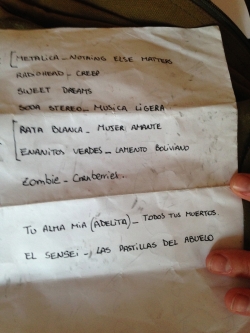 METALICA - NOTHING ELSE MATTERS
RADIOHEAD - CREEP
SWEET DREAMS
SODA STEREO - MUSICA LIGERA
RATA BLANCA - MUJER AMANTE
ENANITOS VERDES - LAMENTO BOLIVIANO
Zombie - Cranberries
TU ALMA MIA (ADELITA) - TODOS TUS MUERTOS.
EL SENSEI - LAS PASTILLAS DEL ABUELO